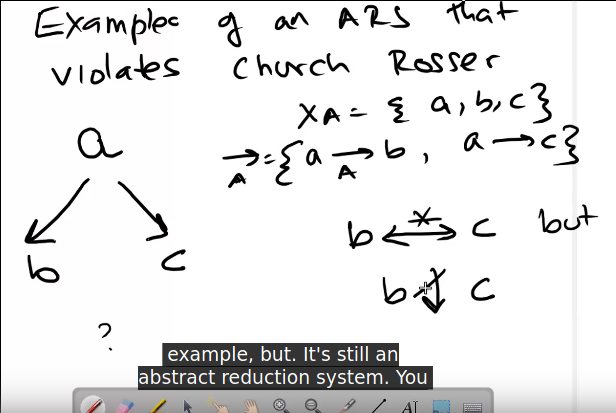 Examples of an ARS that
violates Church Rosser
X A = { a, b, c }
→ A = { a → A b , a → c }
a
b c
b ←*→ c but
b ↓ c
?
example, but. It's still an
abstract reduction system. You